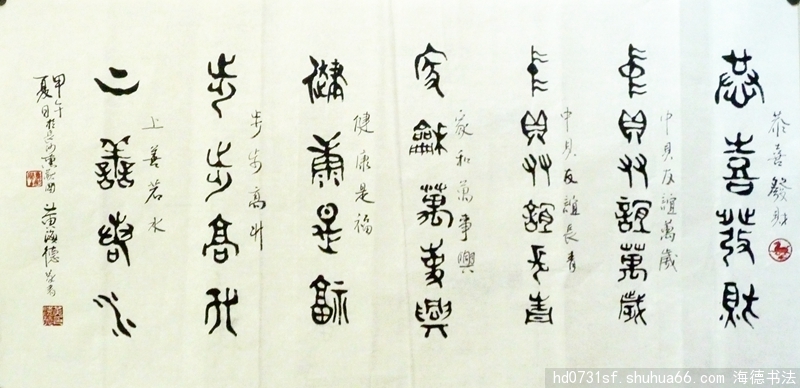 恭喜發財
恭喜發財
中貝友誼萬歲
中貝友誼萬歲
中貝友誼長青
中貝友誼長青
家和萬事興
家和萬事興
健康是福
健康是福
步步高升
步步高升
上善若水
上善若水
甲午
夏月於
黄海德
hd0731sf.shuhua66.com 海德书法